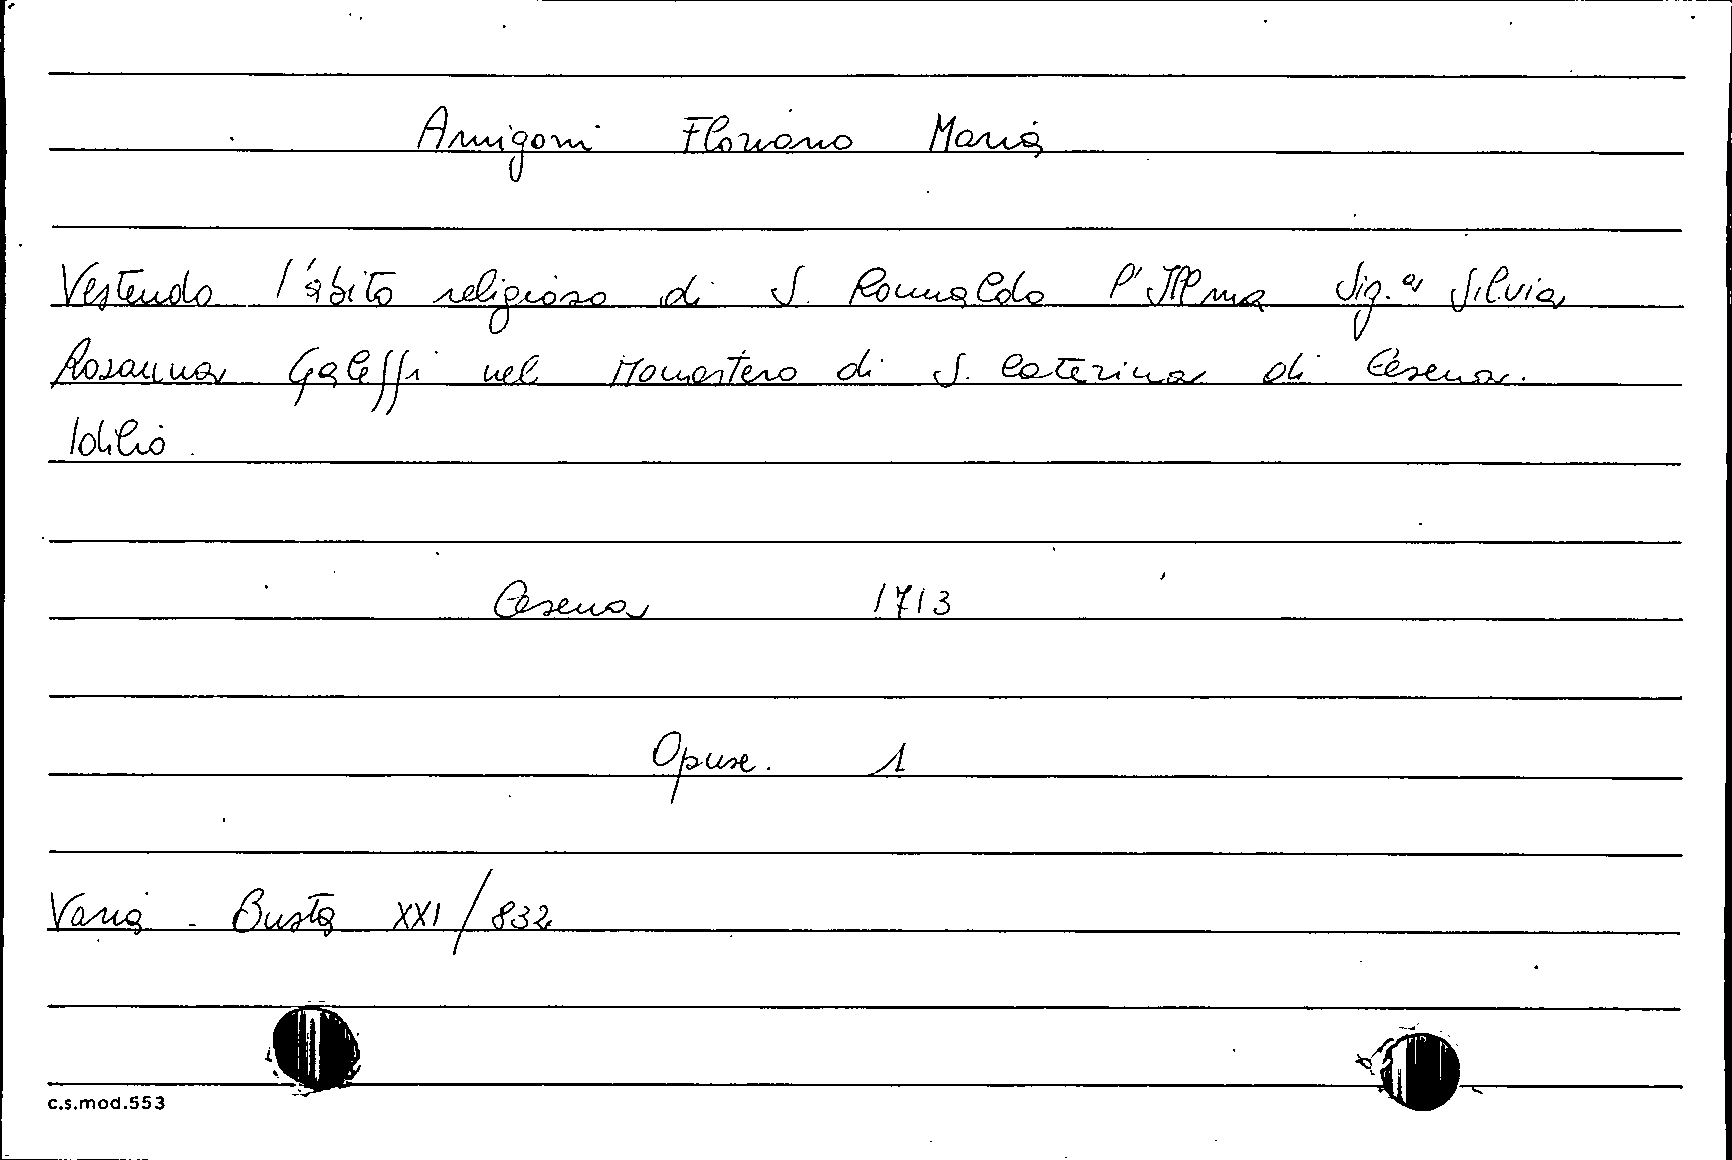 Amigoni Floriano Maria
Vestendo l'abito religioso di S. Romualdo l'Ill.ma Sig.a Silvia
Rosanna Galeffi nel Monastero di S. Caterina di Cesena.
Idilio.
Cesena 1713
Opusc. 1
Varia - Busta XXI/832
c.s.mod.553